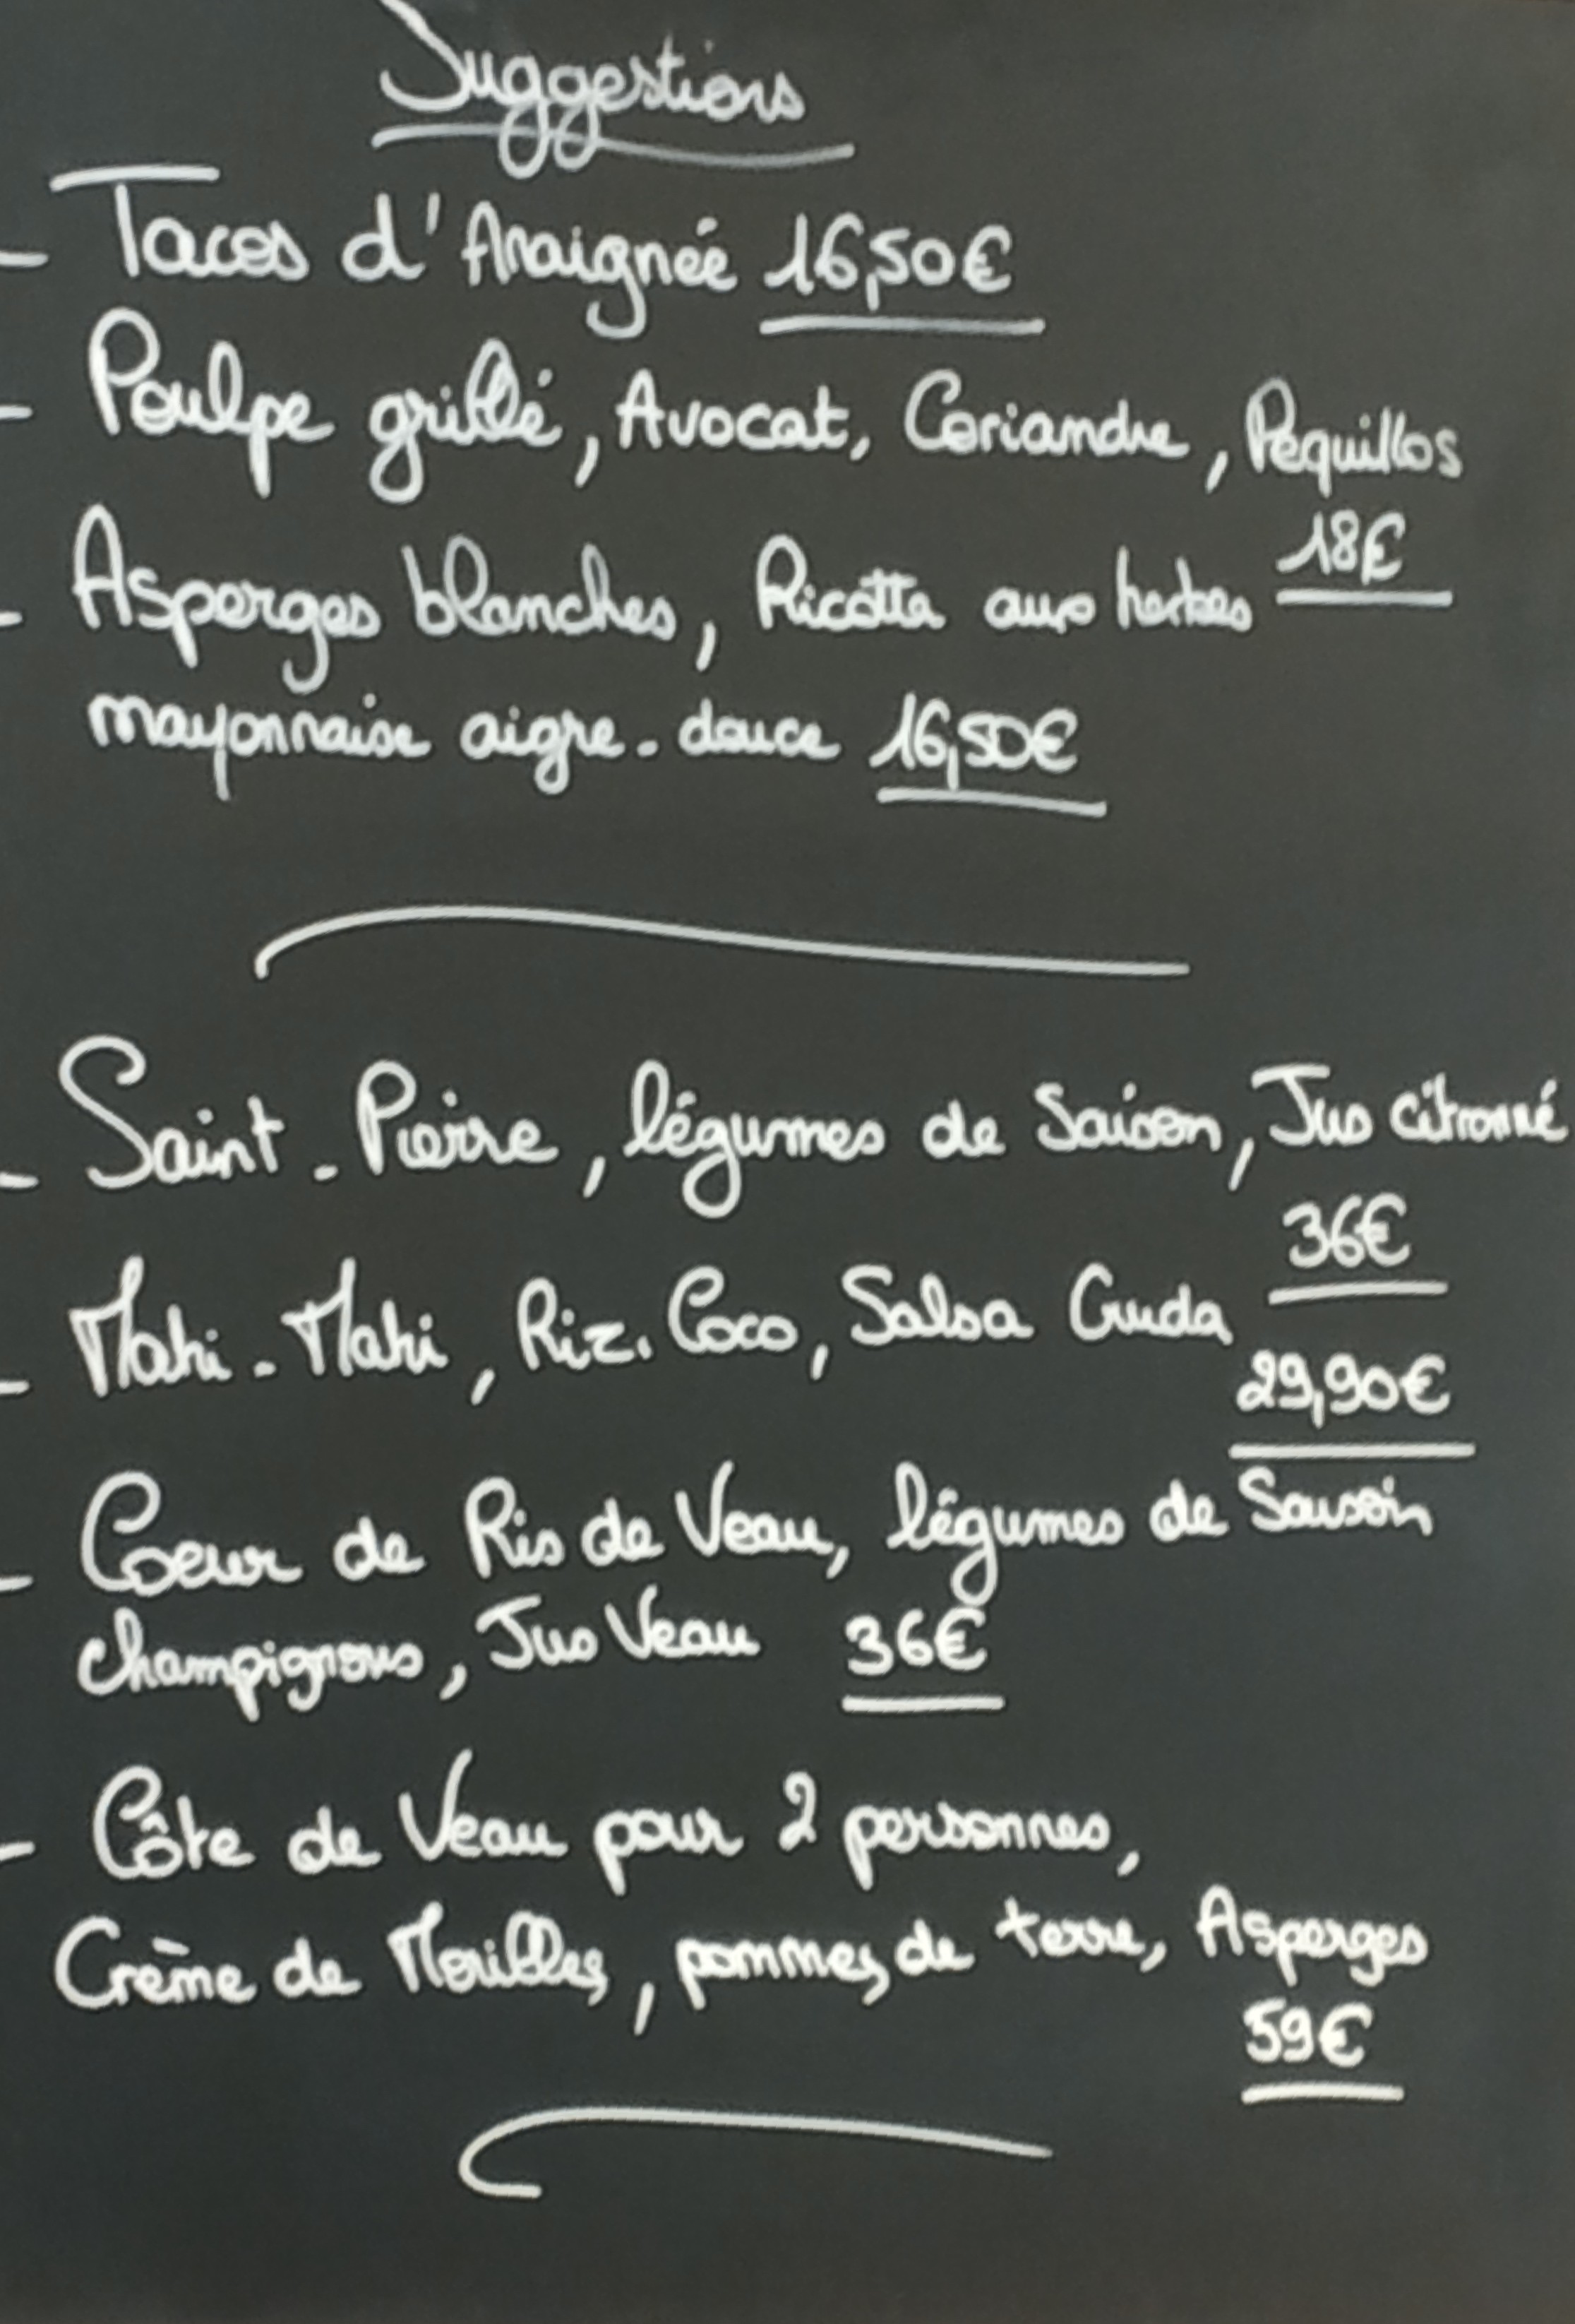 Suggestions
- Tacos d'Araignée 16,50€
- Poulpe grillé, Avocat, Coriandre, Pequillos
18€
- Asperges blanches, Ricotta aux herbes
mayonnaise aigre-douce 16,50€
- Saint-Pierre, légumes de Saison, Jus citronné
36€
- Mahi-Mahi, Riz. Coco, Salsa Cruda
29,90€
- Coeur de Ris de Veau, légumes de Saison
champignons, Jus Veau 36€
- Côte de Veau pour 2 personnes,
Crème de Morilles, pommes de terre, Asperges
59€